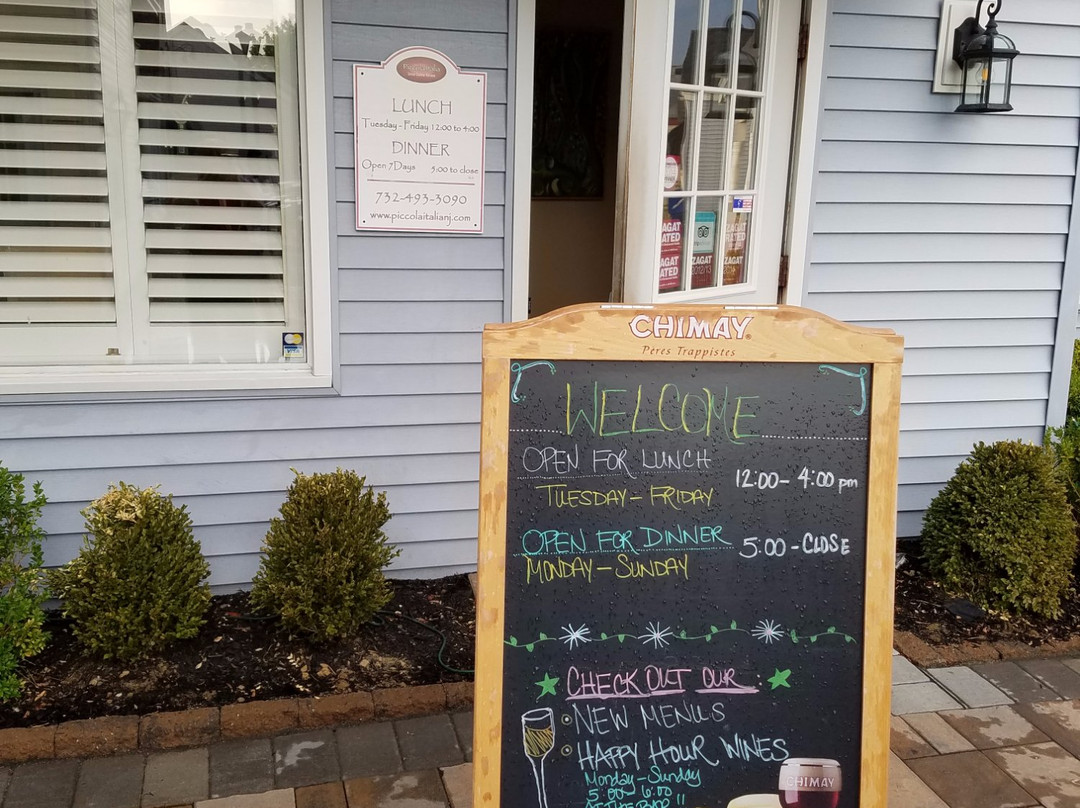 LUNCH
Tuesday - Friday 12:00 to 4:00
DINNER
Open 7 Days 5:00 to close
732-493-3090
www.piccolaitalianj.com
ZAGAT
RATED
ZAGAT
RATED
ZAGAT
2012/13
ZAGAT
RATED
ZAGAT
2014
CHIMAY
Pères Trappistes
WELCOME
OPEN FOR LUNCH 12:00 - 4:00 pm
TUESDAY - FRIDAY
OPEN FOR DINNER 5:00 - CLOSE
MONDAY - SUNDAY
CHECK OUT OUR
NEW MENUS
HAPPY HOUR WINES
Monday - Sunday
5:00 6:00
AT THE BAR !!
CHIMAY